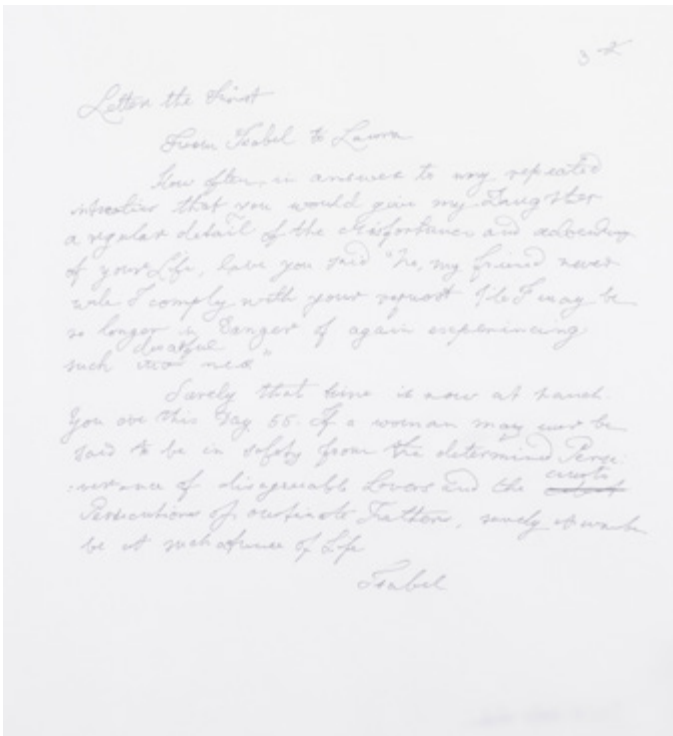 3
Letter the First
From Isabel to Laura
How often, in answer to my repeated
intreaties that you would give my Daughter
a regular detail of the Misfortunes and adventures
of your Life, have you said "No, my friend never
will I comply with your request till I may be
no longer in Danger of again experiencing
such dreadful ones."
Surely that time is now at hand.
You are this Day 55. If a woman may ever be
said to be in safety from the determined Perse-
:verance of disagreeable Lovers and the cruel
Persecutions of obstinate Fathers, surely it must
be at such a time of Life
Isabel